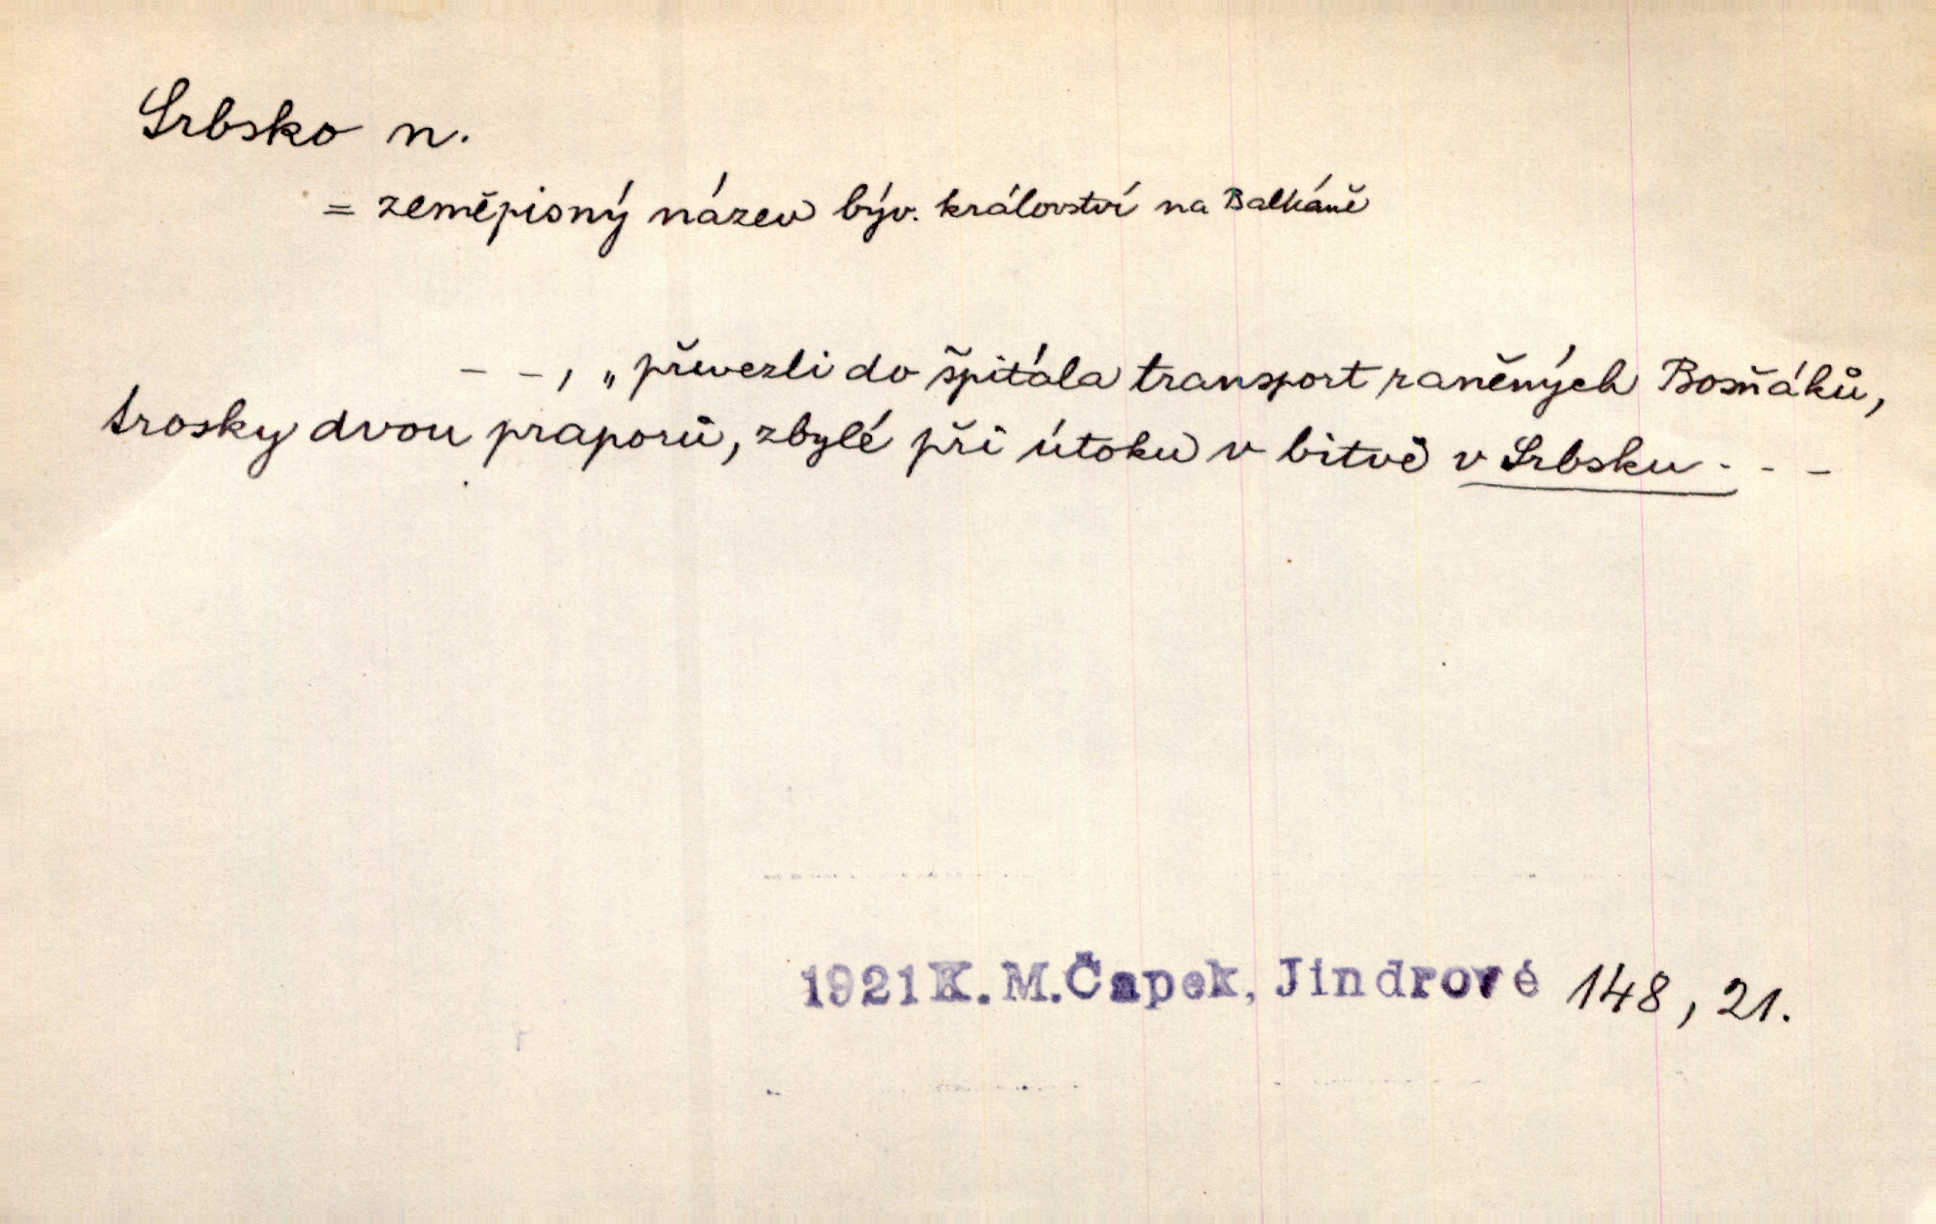 Srbsko n.
= zeměpisný název býv. království na Balkáně
– –, „převezli do špitála transport raněných Bosňáků,
trosky dvou praporů, zbylé při útoku v bitvě v Srbsku - - -
1921 K. M. Čapek, Jindrové 148, 21.